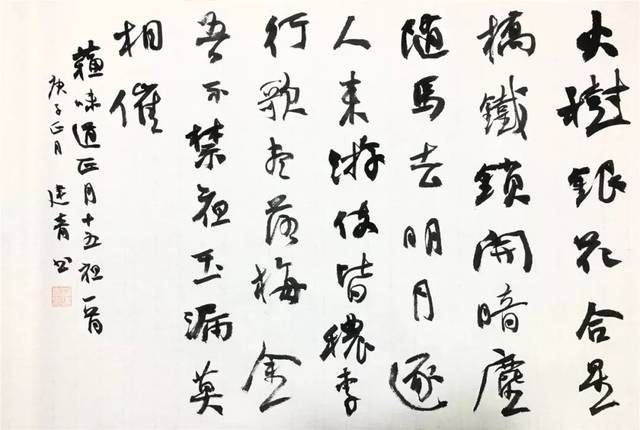 火樹銀花合星
橋鐵鎖開暗塵
隨馬去明月逐
人来游伎皆穠李
行歌尽落梅金
吾不禁夜玉漏莫
相催
蘇味道正月十五夜一首
庚子正月 青书